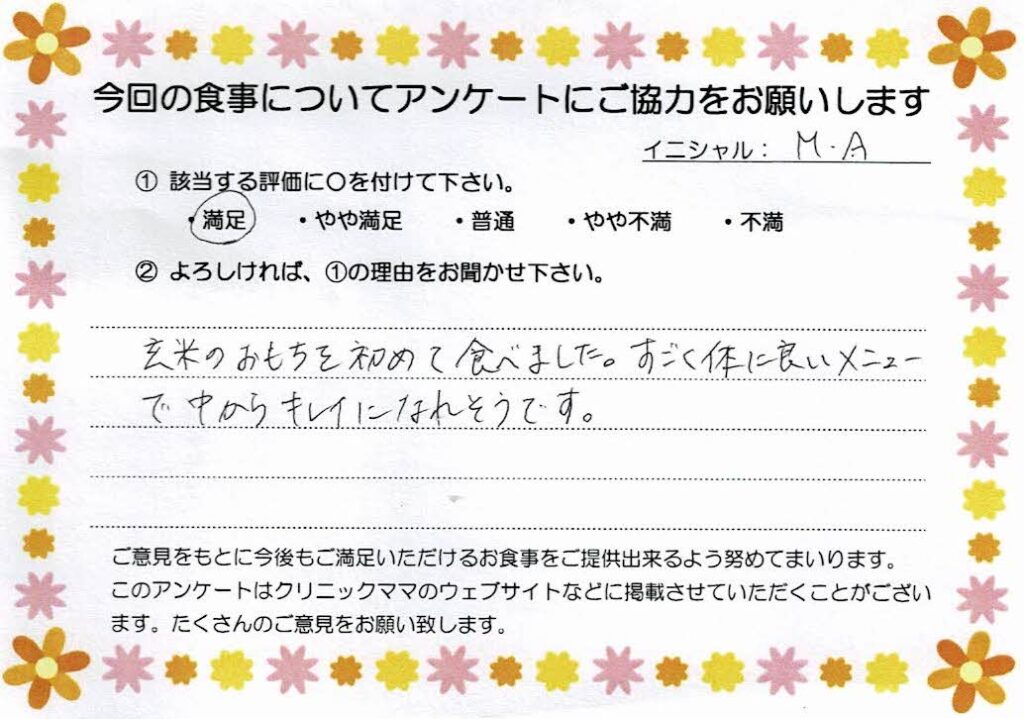 今回の食事についてアンケートにご協力をお願いします
イニシャル： M.A
① 該当する評価に〇を付けて下さい。
・満足 ・やや満足 ・普通 ・やや不満 ・不満
② よろしければ、①の理由をお聞かせ下さい。
玄米のおもちを初めて食べました。すごく体に良いメニュー
で中からキレイになれそうです。
ご意見をもとに今後もご満足いただけるお食事をご提供出来るよう努めてまいります。
このアンケートはクリニックママのウェブサイトなどに掲載させていただくことがござい
ます。たくさんのご意見をお願い致します。